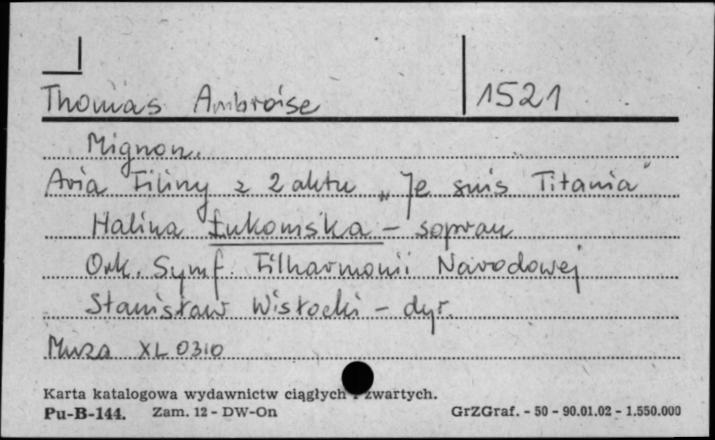 Thomas Ambroise 1521
Mignon.
Aria Filiny z 2 aktu „Je suis Titania"
Halina Łukomska - sopran
Ork. Symf. Filharmonii Narodowej
Stanisław Wisłocki - dyr.
Muza XL 0310
Karta katalogowa wydawnictw ciągłych i zwartych.
Pu-B-144. Zam. 12 - DW-On GrZGraf. - 50 - 90.01.02 - 1.550.000